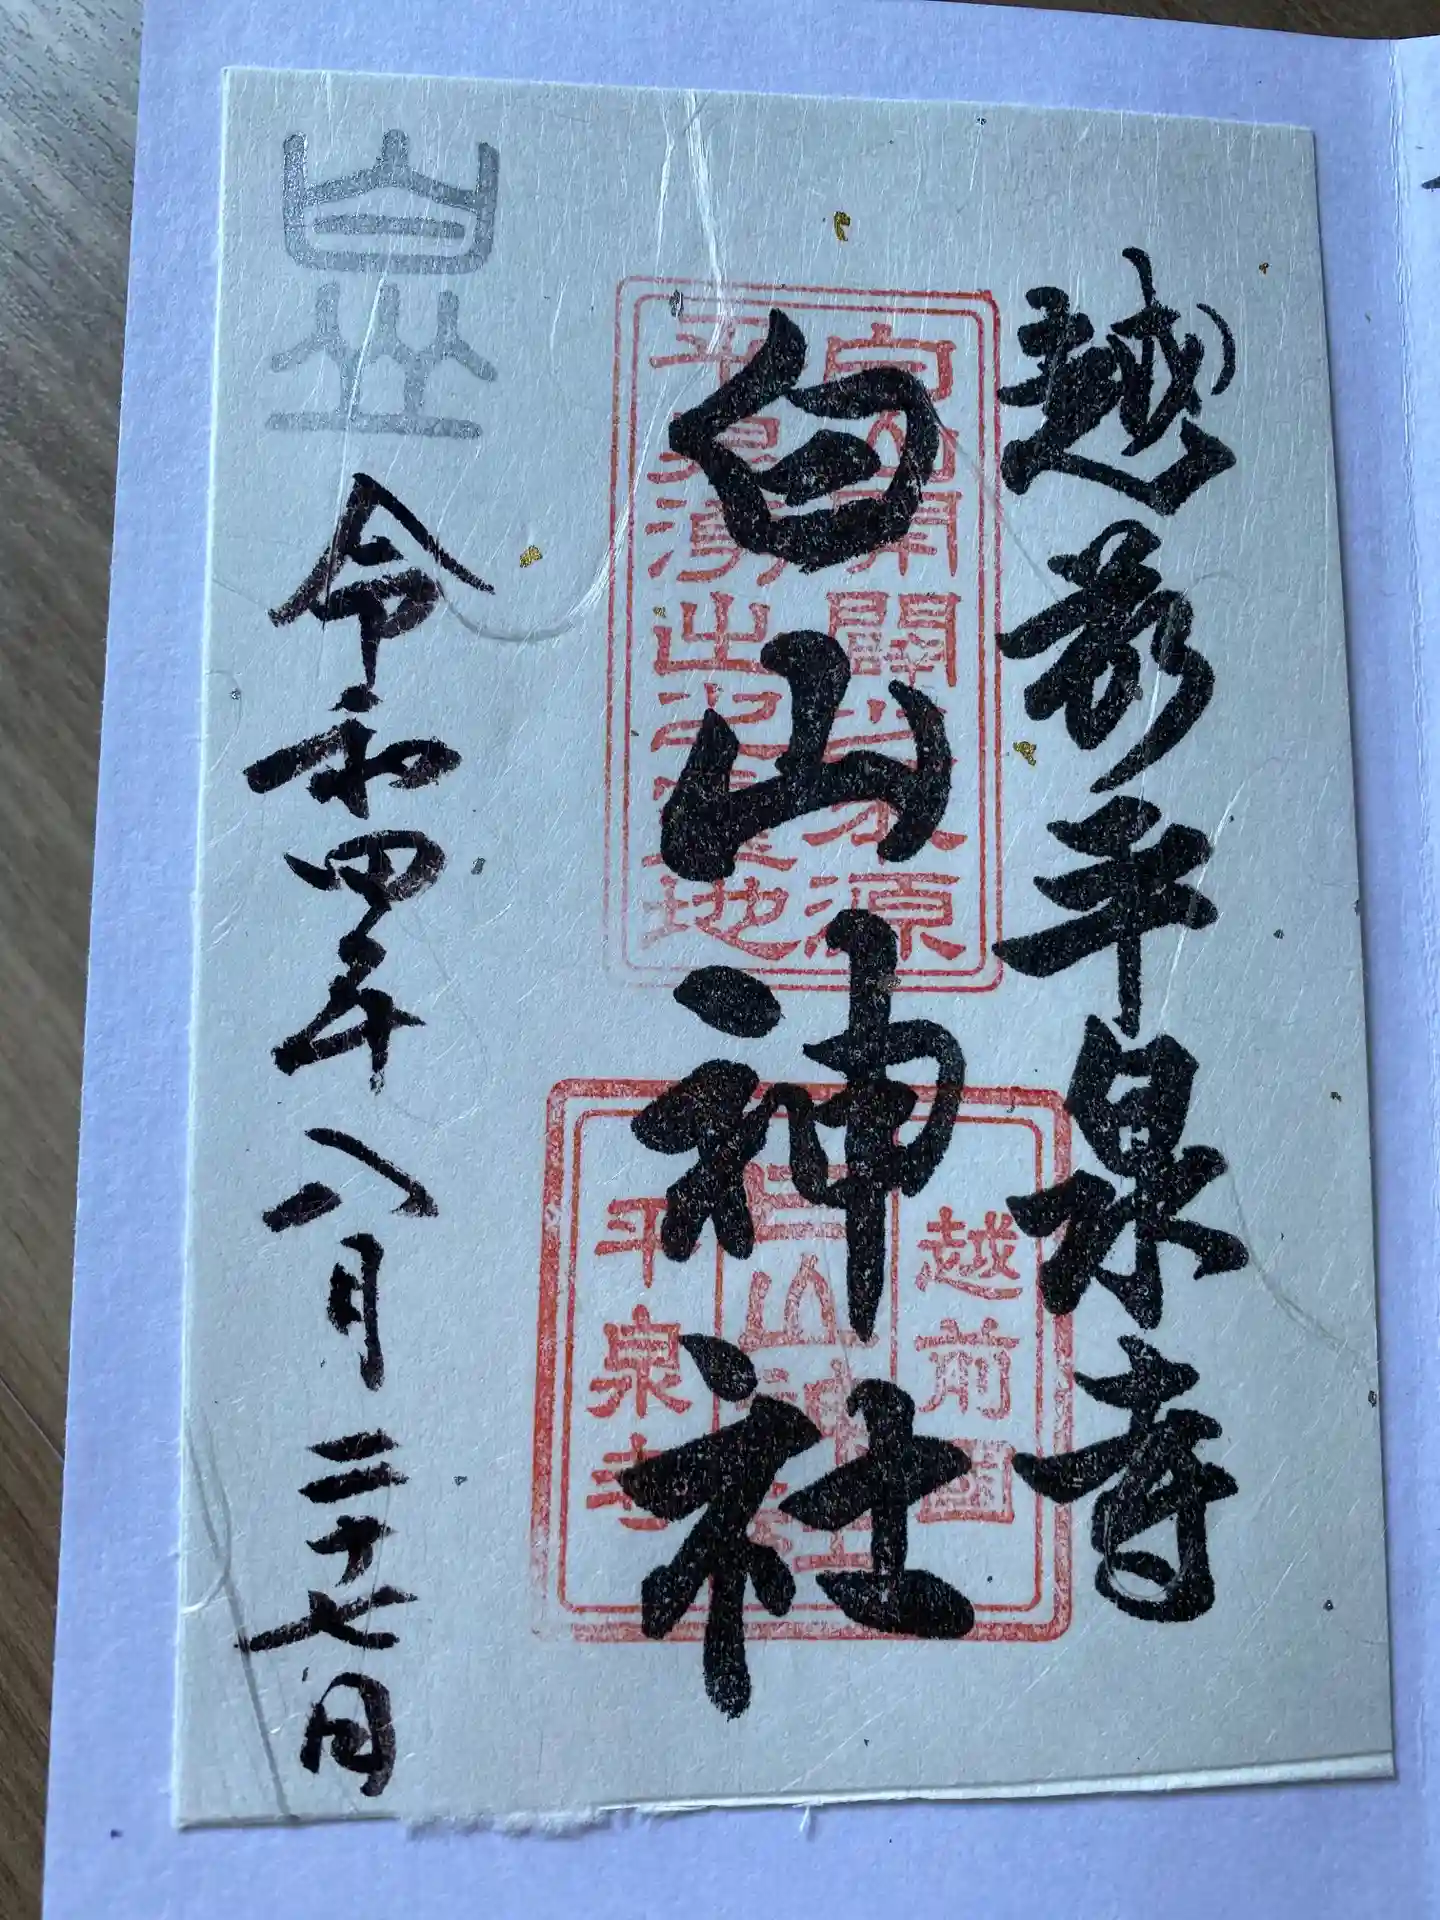 越前平泉寺
白山神社
令和四年八月二十七日
白山開闢
源
平泉湧出之
地
越前國
白山神社
平泉寺